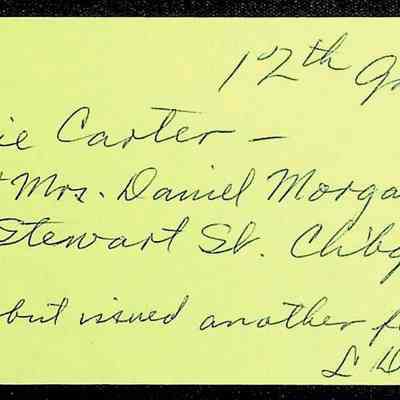 12th Gr
ie Carter -
Mrs. Daniel Morga
Stewart St. Chbg
but issued another f
L D